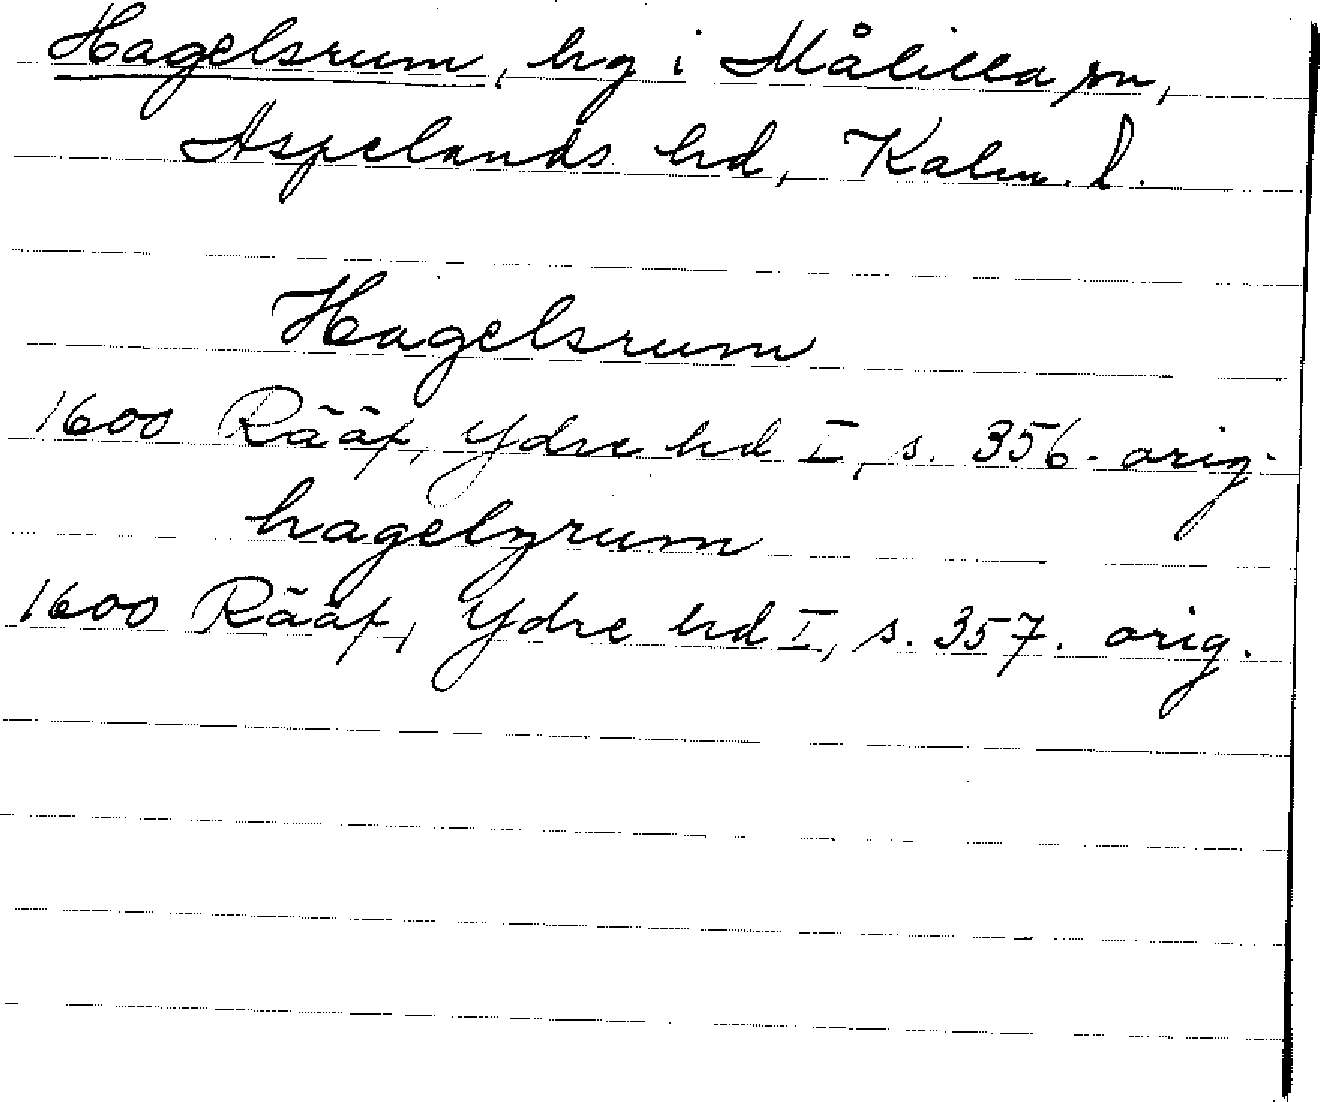 Hagelsrum, hg i Målilla sn,
Aspelands hd, Kalm. l.
Hagelsrum
1600 Rääf, Ydre hd I, s. 356. orig.
hagelzrum
1600 Rääf, Ydre hd I, s. 357. orig.